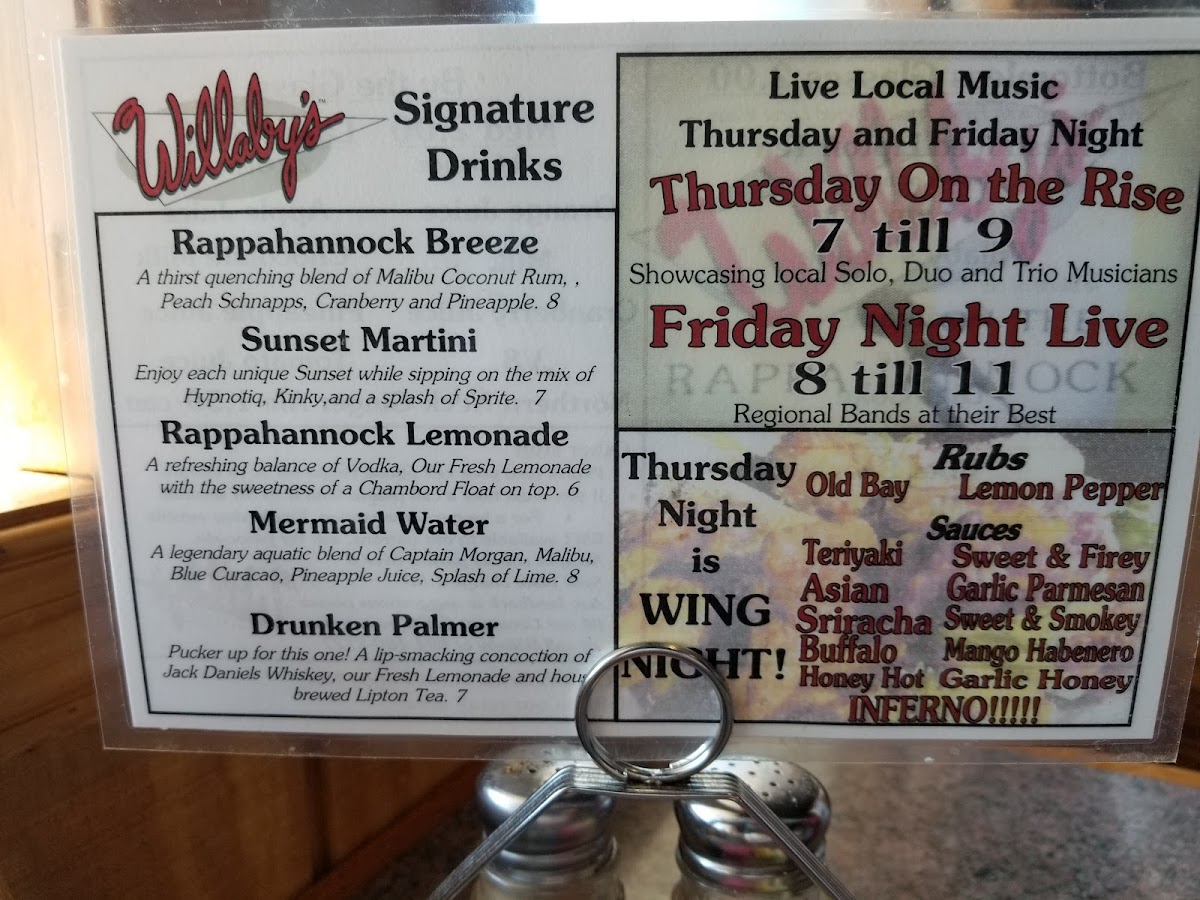 Willaby's™
Signature
Drinks
Rappahannock Breeze
A thirst quenching blend of Malibu Coconut Rum, ,
Peach Schnapps, Cranberry and Pineapple. 8
Sunset Martini
Enjoy each unique Sunset while sipping on the mix of
Hypnotiq, Kinky,and a splash of Sprite. 7
Rappahannock Lemonade
A refreshing balance of Vodka, Our Fresh Lemonade
with the sweetness of a Chambord Float on top. 6
Mermaid Water
A legendary aquatic blend of Captain Morgan, Malibu,
Blue Curacao, Pineapple Juice, Splash of Lime. 8
Drunken Palmer
Pucker up for this one! A lip-smacking concoction of
Jack Daniels Whiskey, our Fresh Lemonade and hous
brewed Lipton Tea. 7
Live Local Music
Thursday and Friday Night
Thursday On the Rise
7 till 9
Showcasing local Solo, Duo and Trio Musicians
Friday Night Live
8 till 11
Regional Bands at their Best
Thursday
Night
is
WING
NIGHT!
Rubs
Old Bay Lemon Pepper
Sauces
Teriyaki Sweet & Firey
Asian Garlic Parmesan
Sriracha Sweet & Smokey
Buffalo Mango Habenero
Honey Hot Garlic Honey
INFERNO!!!!!